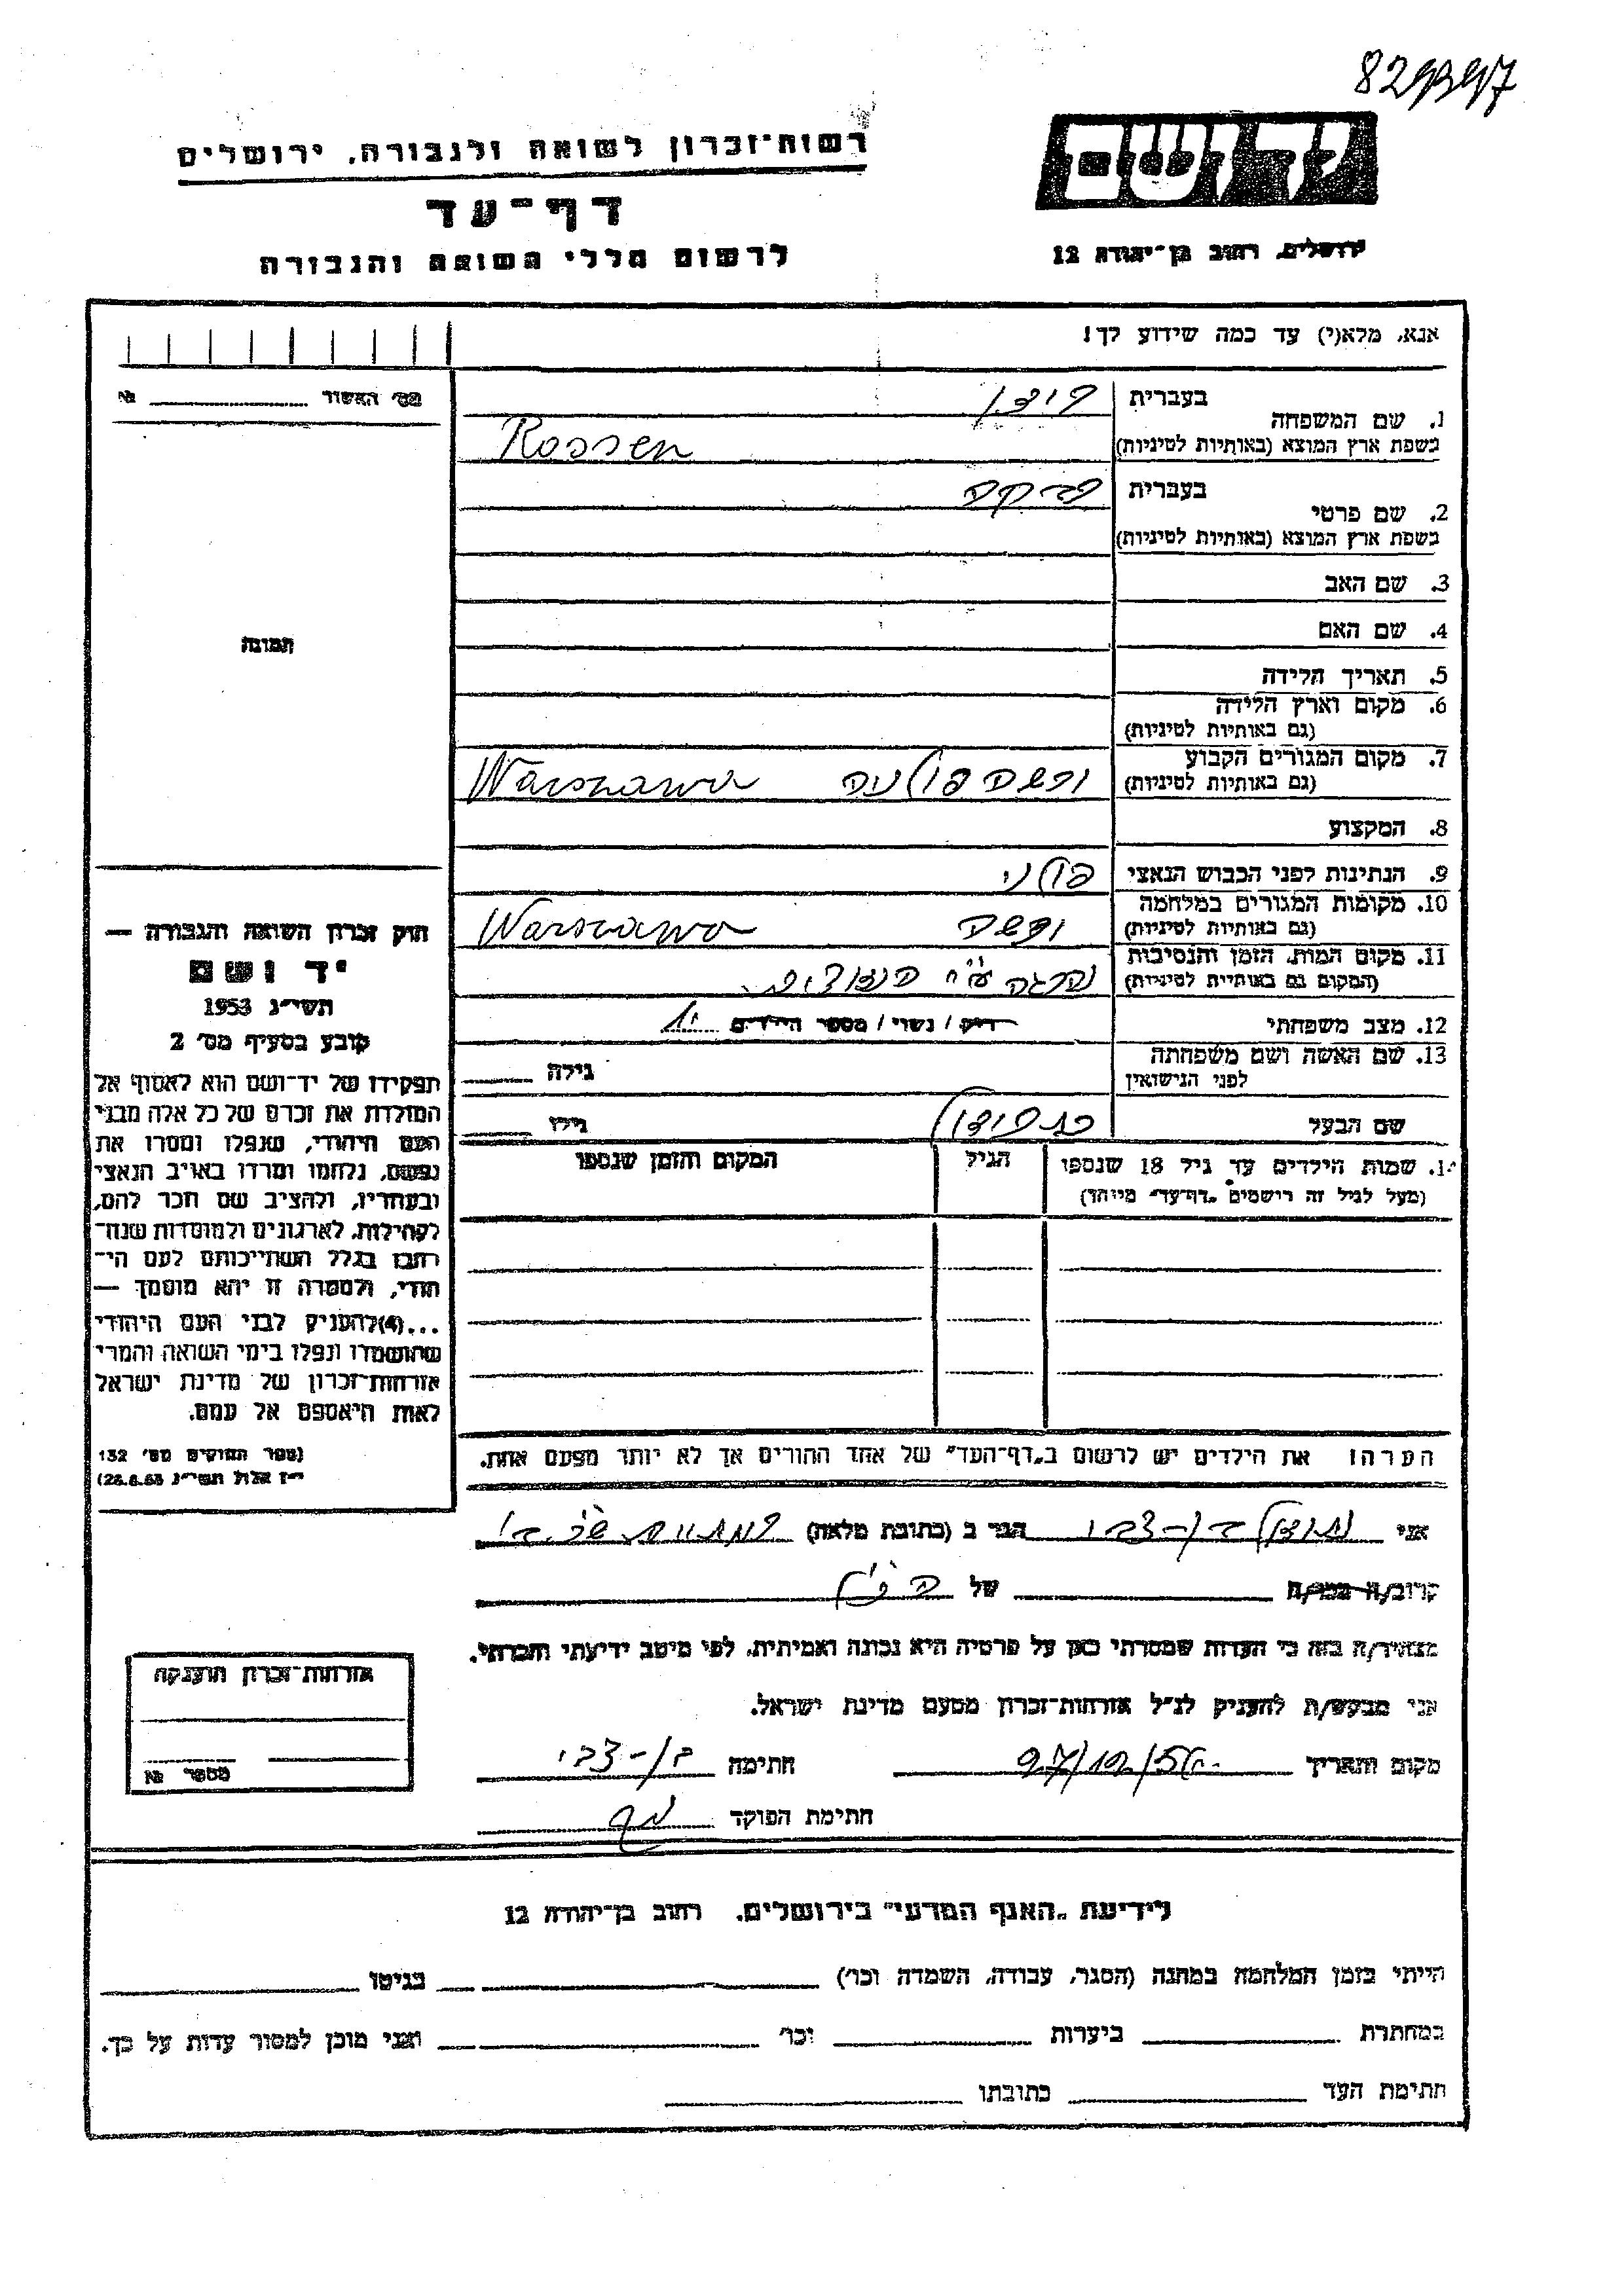 רשות־זכרון לשואה ולגבורה, ירושלים
דף־עד
לרשום חללי השואה והגבורה
יד ושם
ירושלים, רחוב בן־יהודה 12
אנא, מלא(י) עד כמה שידוע לך!
מס׳ האשור №
1. שם המשפחה
בעברית
בשפת ארץ המוצא (באותיות לטיניות) Rossen
2. שם פרטי
בעברית
בשפת ארץ המוצא (באותיות לטיניות)
3. שם האב
4. שם האם
תמונה
5. תאריך הלידה
6. מקום וארץ הלידה
(גם באותיות לטיניות)
7. מקום המגורים הקבוע
(גם באותיות לטיניות) Warszawa
8. המקצוע
9. הנתינות לפני הכבוש הנאצי פולני
10. מקומות המגורים במלחמה
(גם באותיות לטיניות) ורשה Warszawa
11. מקום המות, הזמן והנסיבות
(המקום גם באותיות לטיניות) נהרגה ע״י
12. מצב משפחתי רוק / נשוי / מספר הילדים
13. שם האשה ושם משפחתה
לפני הנישואין
גילה
שם הבעל
גילו
14. שמות הילדים עד גיל 18 שנספו
(מעל לגיל זה רישמים „דף־עד״ מיוחד)
הגיל
המקום והזמן שנספו
חוק זכרון השואה והגבורה —
יד ושם
תשי״ג 1953
קובע בסעיף מס׳ 2
תפקידו של יד־ושם הוא לאסוף אל
המולדת את זכרם של כל אלה מבני
העם היהודי, שנפלו ומסרו את
נפשם, נלחמו ומרדו באויב הנאצי
ובעוזריו, ולהציב שם וזכר להם,
לקהילות, לארגונים ולמוסדות שנח־
רבו בגלל השתייכותם לעם הי־
הודי, ולמטרה זו יהא מוסמך —
...(4)להעניק לבני העם היהודי
שהושמדו ונפלו בימי השואה והמרי
אזרחות־זכרון של מדינת ישראל
לאות היאספם אל עמם.
(ספר החוקים מס׳ 132
י״ז אלול תשי״ג 28.8.53)
הערה: את הילדים יש לרשום ב„דף־העד״ של אחד ההורים אך לא יותר מפעם אחת.
אני בן־צבי הגר ב (כתובת מלאה)
קרוב/ה מכר/ה של
מצהיר/ה בזה כי העדות שמסרתי כאן על פרטיה היא נכונה ואמיתית, לפי מיטב ידיעתי והכרתי.
אני מבקש/ת להעניק לנ״ל אזרחות־זכרון מטעם מדינת ישראל.
מקום ותאריך חתימה בן־צבי
חתימת הפוקד
אזרחות־זכרון הוענקה
מספר №
לידיעת „האגף המדעי״ בירושלים, רחוב בן־יהודה 12
הייתי בזמן המלחמה במחנה (הסגר, עבודה, השמדה וכו׳) בגיטו
במחתרת ביערות וכו׳ ואני מוכן למסור עדות על כך.
חתימת העד כתובתו